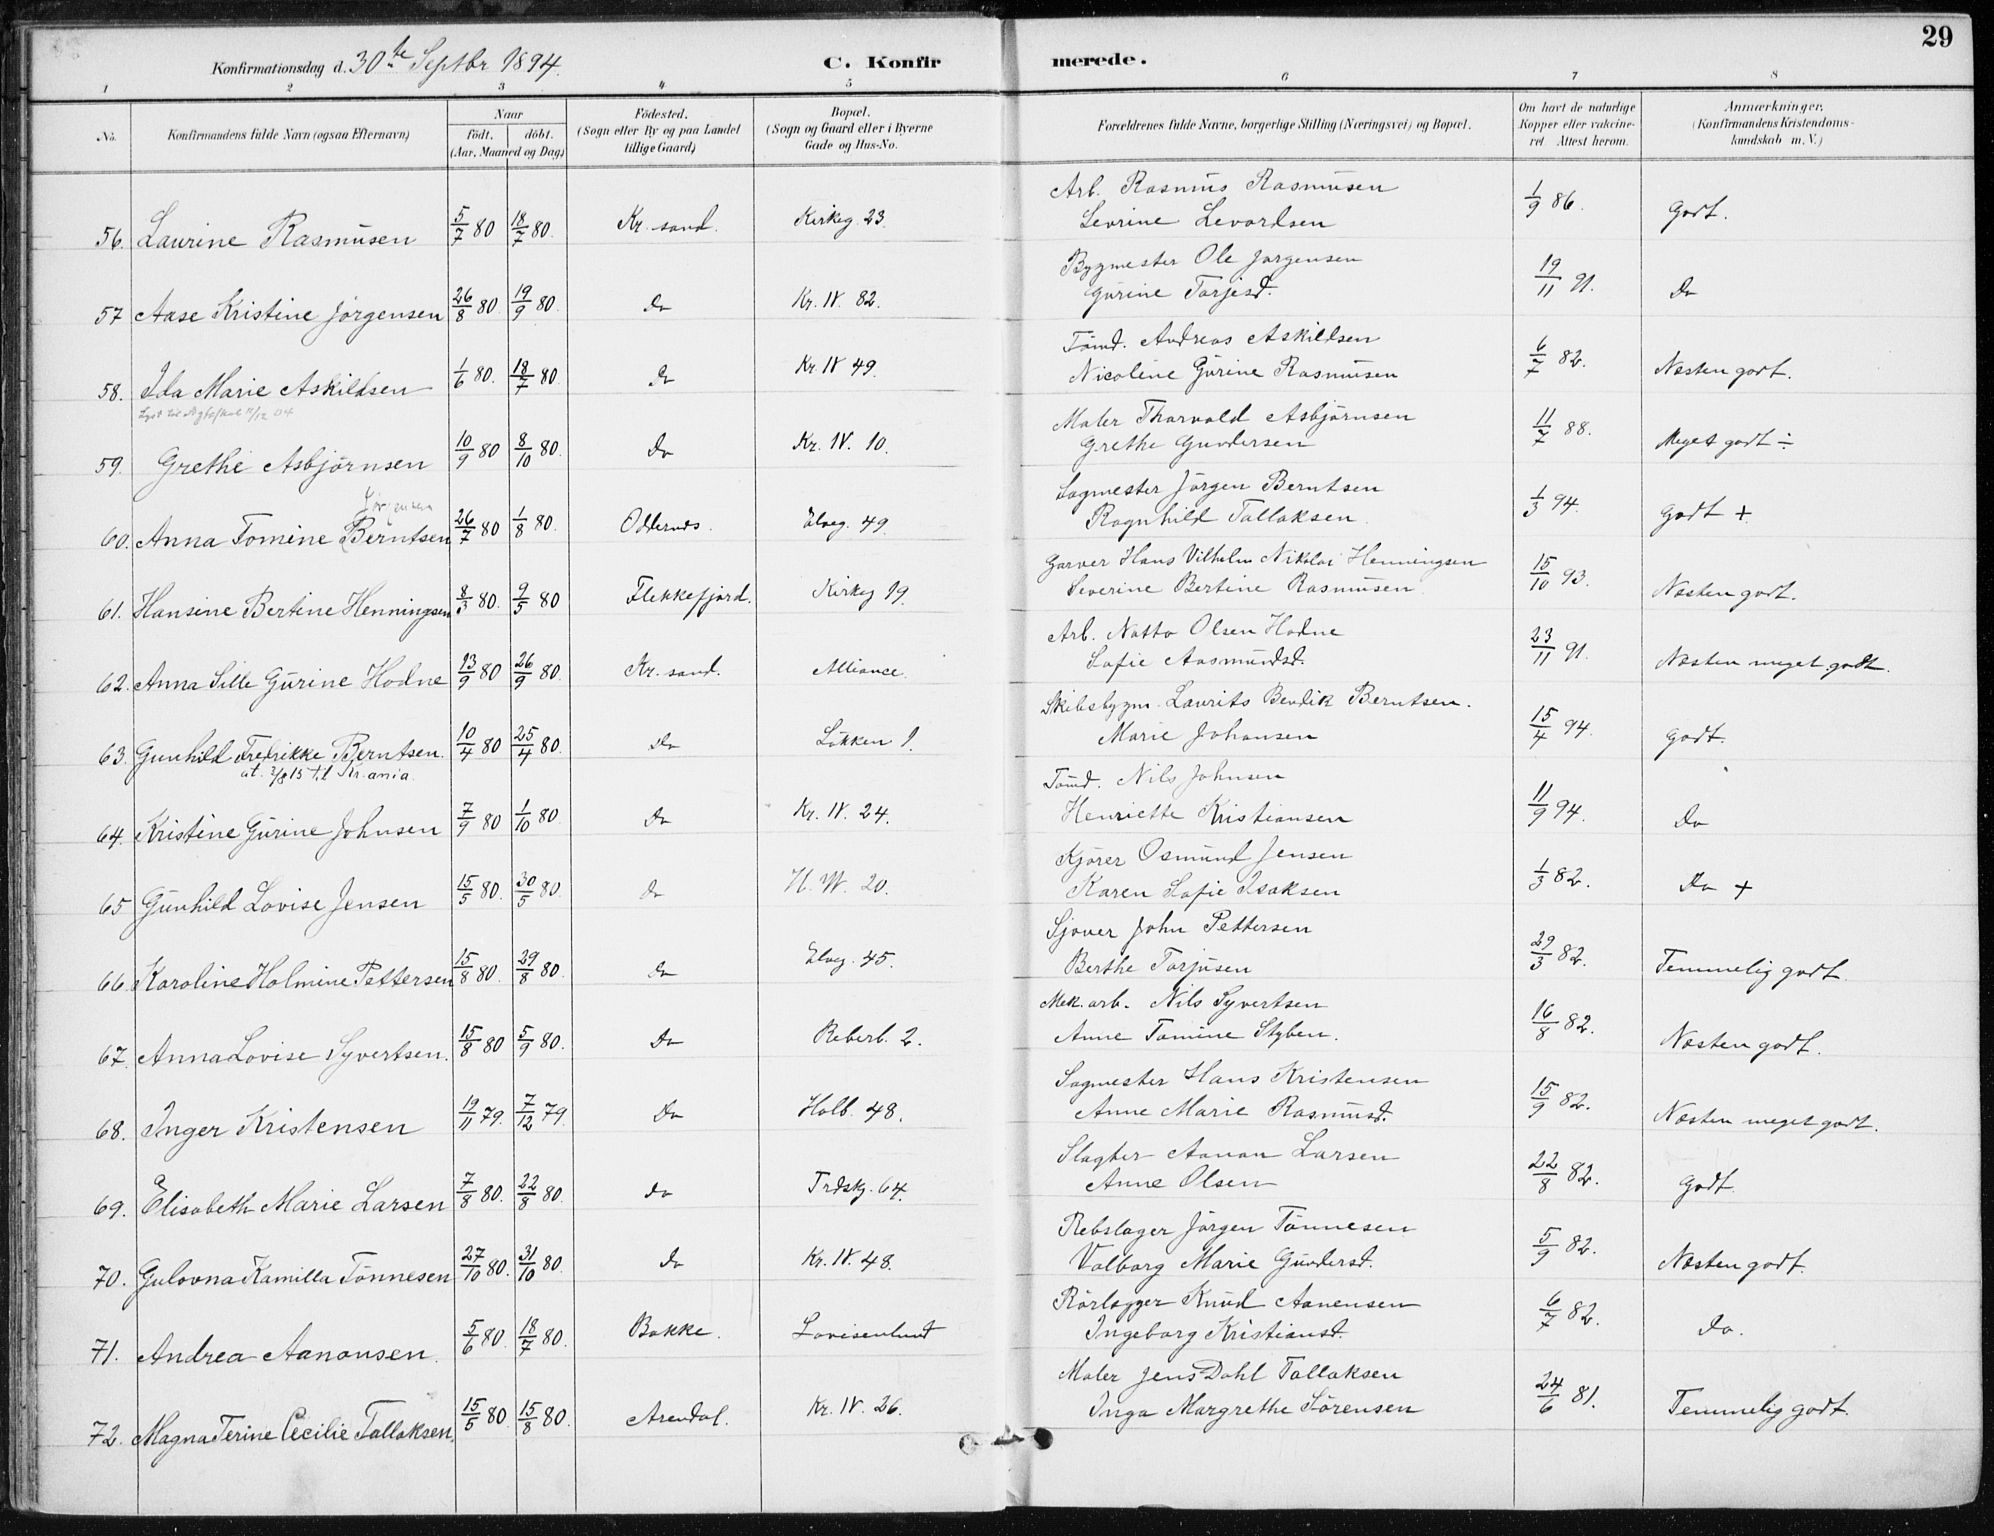 29
Konfirmationsdag d. 30te Septbr 1894.
C. Konfirmerede.
1 2 3 4 5 6 7 8
No. Konfirmandens fulde Navn (ogsaa Efternavn) Naar födt. döbt. (Aar, Maaned og Dag) Födested. (Sogn eller By og paa Landet tillige Gaard) Bopæl. (Sogn og Gaard eller i Byerne Gade og Hus-No. Forældrenes fulde Navne, borgerlige Stilling (Næringsvei) og Bopæl. Om havt de naturlige Kopper eller vakcineret. Attest herom. Anmærkninger. (Konfirmandens Kristendomskundskab m. V.)
Arb. Rasmus Rasmusen
56. Laurine Rasmusen 5/7 80 18/7 80. Kr. sand. Kirkeg. 23. Sevrine Levordsen 1/9 86. Godt.
Bygmester Ole Jørgensen
57 Aase Kristine Jørgensen 26/8 80 19/9 80 Do Kr. IV. 82. Gurine Torjesd. 19/11 91. Do
Tømd. Andreas Askildsen
58. Ida Marie Askildsen 1/6 80. 18/7 80. Do Kr. IV 49. Nicoline Gurine Rasmusen 6/7 82. Næsten godt.
Maler Thorvald Asbjørnsen
59. Grethe Asbjørnsen 10/9 80 8/10 80. Do Kr. IV. 10. Grethe Gundersen 11/7 88. Meget godt ÷
Jørgensen
Sagmester Jørgen Berntsen
60. Anna Tomine Berntsen 26/7 80 1/8 80. Oddernes. Elveg. 49. Ragnhild Tallaksen. 1/3 94. Godt +
Garver Hans Vilhelm Nikolai Henningsen
61. Hansine Bertine Henningsen 8/3 80. 9/5 80 Flekkefjord. Kirkeg 19. Severine Bertine Rasmusen 15/10 93. Næsten godt.
Arb. Notto Olsen Hodne
62. Anna Sille Gurine Hodne 13/9 80 26/9 80. Kr. sand. Alliance. Sofie Aasmundsd. 23/11 91. Næsten meget godt.
Skibsbygm. Laurits Bendik Berntsen.
63. Gunhild Fredrikke Berntsen. 10/4 80 25/4 80. Do Løkken 1. Marie Johansen 15/4 94. Godt.
at. 2/8 15 til Kr.ania.
Tømd. Nils Johnsen
64. Kristine Gurine Johnsen 7/9 80 1/10 80 Do Kr. IV. 24. Henriette Kristiansen 11/9 94. Do
Kjører Osmund Jensen
65 Gunhild Lovise Jensen 15/5 80. 30/5 80. Do H. W. 20. Karen Sofie Isaksen 1/3 82. Do +
Sjouer John Pettersen
66. Karoline Holmine Pettersen 15/8 80. 29/8 80. Do Elveg. 45. Berthe Torjusen 29/3 82. Temmelig godt.
Mek. arb. Nils Syvertsen
67. Anna Lovise Syvertsen. 15/8 80 5/9 80. Do Reberb. 2. Anne Tomine Styben. 16/8 82. Næsten godt.
Sagmester Hans Kristensen
68. Inger Kristensen 19/11 79. 7/12 79. Do Holb. 48. Anne Marie Rasmusd. 15/9 82. Næsten meget godt.
Slagter Aanon Larsen
69. Elisabeth Marie Larsen 7/8 80. 22/8 80. Do Trdskj. 64. Anne Olsen 22/8 82. Godt.
Rebslager Jørgen Tønnesen
70. Gulovna Kamilla Tønnesen 27/10 80. 31/10 80. Do Kr. IV. 48. Valborg Marie Gundersd. 5/9 82. Næsten godt.
Rørlægger Knud Aanensen
71. Andrea Aanonsen. 5/6 80. 18/7 80. Bakke. Lovisenlund Ingeborg Kristiansd. 6/7 82. Do.
Maler Jens Dahl Tallaksen
72. Magna Terine Cecilie Tallaksen. 15/5 80 15/8 80. Arendal. Kr. IV. 26. Inga Margrethe Sørensen 24/6 81. Temmelig godt.